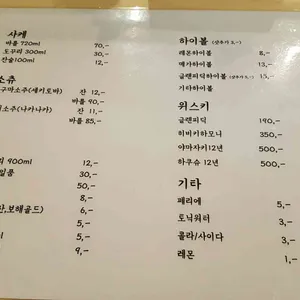 사케
바틀 720ml 70,-
도쿠리 300ml 30,-
잔술100ml 12,-
소츄
구마소주(세키토바) 잔 12,-
바틀 90,-
소주(나카나카) 잔 11,-
바틀 85,-
900ml 12,-
일품 30,-
50,-
8,-
보해골드) 6,-
5,-
5,-
9,-
하이볼
레몬하이볼 8,-
메가하이볼 13,-
글랜피딕하이볼 15,-
기타하이볼
위스키
글랜피딕 190,-
히비키하모니 350,-
야마자키12년 500,-
하쿠슈 12년 500,-
기타
페리에 5,-
토닉워터 3,-
콜라/사이다 3,-
레몬 1,-